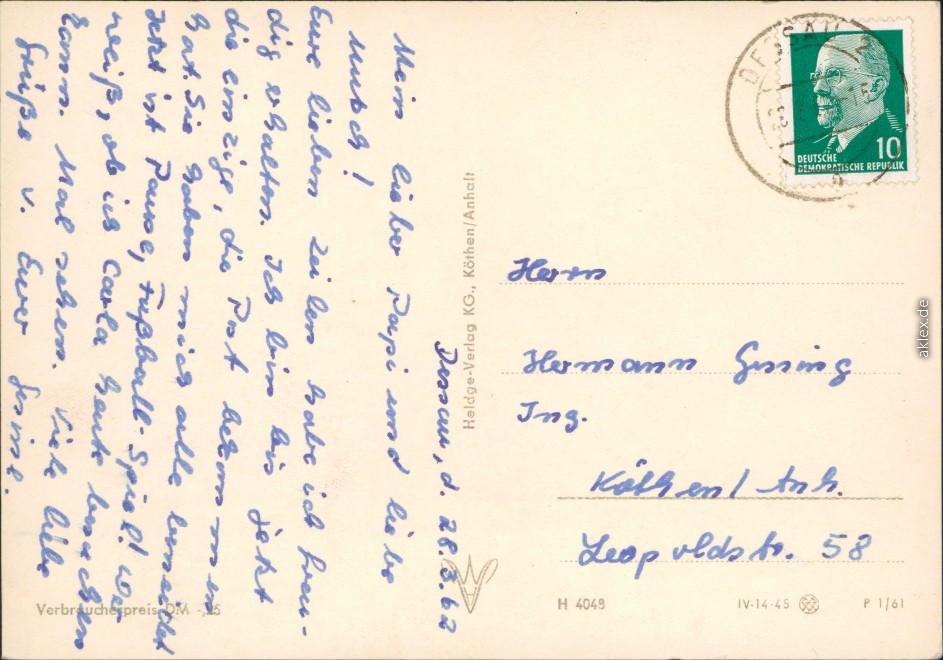 Dessau, d. 28.3.62
Mein lieber Papi und liebe
Mutsch!
Eure lieben Zeilen habe ich freu-
dig erhalten. Ich bin bis jetzt
die einzige, die Post bekommen
hat. Sie haben mich alle
Jetzt ist Pause, Fußball-Spiel! Wer
weiß, ob ich Carla heute besuchen
kann. Mal sehen. Viele liebe
Grüße v. Eurer
Verbraucherpreis DM -,25
Heldge-Verlag KG., Köthen/Anhalt
DESSAU 2
10
DEUTSCHE
DEMOKRATISCHE REPUBLIK
Herrn
Hermann
Ing.
Köthen/Anh.
Leopoldstr. 58
H 4048
IV-14-45
P 1/61
aklex.de